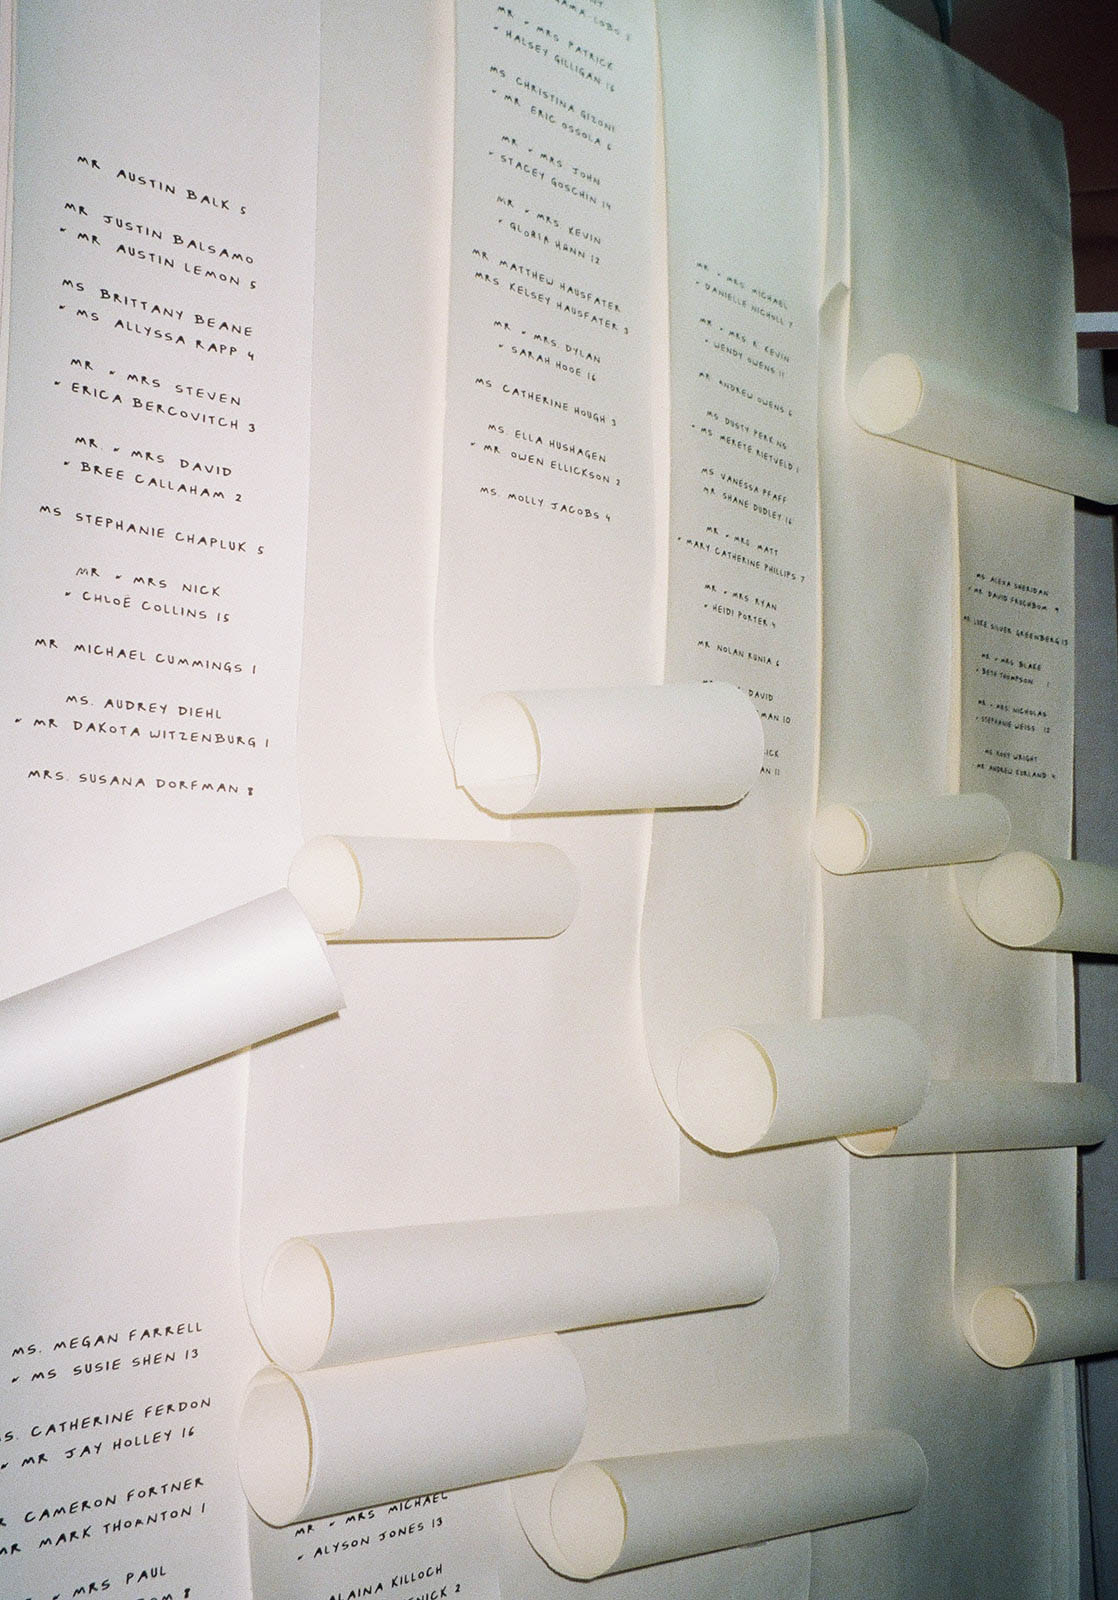 MR AUSTIN BALK 5
MR JUSTIN BALSAMO
+ MR AUSTIN LEMON 5
MS BRITTANY BEANE
+ MS ALLYSSA RAPP 4
MR + MRS STEVEN
+ ERICA BERCOVITCH 3
MR. + MRS DAVID
+ BREE CALLAHAM 2
MS STEPHANIE CHAPLUK 5
MR + MRS NICK
+ CHLOË COLLINS 15
MR MICHAEL CUMMINGS 1
MS. AUDREY DIEHL
+ MR DAKOTA WITZENBURG 1
MRS. SUSANA DORFMAN 8
MS. MEGAN FARRELL
+ MS SUSIE SHEN 13
CATHERINE FERDON
+ MR JAY HOLLEY 16
CAMERON FORTNER
MR MARK THORNTON 1
+ MRS PAUL
8
LOBO
MR + MRS PATRICK
+ HALSEY GILLIGAN 16
MS CHRISTINA GIZONI
+ MR ERIC OSSOLA 6
MR + MRS JOHN
+ STACEY GOSCHIN 14
MR + MRS. KEVIN
+ GLORIA HANN 12
MR MATTHEW HAUSFATER
MRS KELSEY HAUSFATER 3
MR + MRS. DYLAN
+ SARAH HOOE 16
MS CATHERINE HOUGH 3
MS. ELLA HUSHAGEN
+ MR OWEN ELLICKSON 2
MS. MOLLY JACOBS 4
MR + MRS MICHAEL
+ ALYSON JONES 13
ALAINA KILLOCH
2
MR + MRS. MICHAEL
+ DANIELLE NICHOLL 7
MR + MRS. R. KEVIN
+ WENDY OWENS 11
MR ANDREW OWENS 6
MS DUSTY PERKINS
+ MS MERETE RIETVELD 1
MS VANESSA PFAFF
MR SHANE DUDLEY 16
MR + MRS MATT
+ MARY CATHERINE PHILLIPS 7
MR + MRS RYAN
+ HEIDI PORTER 4
MR NOLAN RUNIA 6
DAVID
10
11
MS ALEXA SHERIDAN
+ MR DAVID
SILVER GREENBERG 13
MR + MRS BLAKE
+ BETH THOMPSON 1
MR + MRS. NICHOLAS
+ STEPHANIE WEISS 12
MS RORY WRIGHT
MR ANDREW KURLAND 4